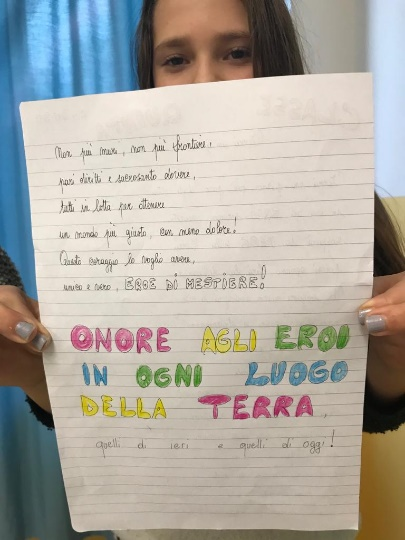 Non più muri, non più frontiere,
pari diritti e sacrosanto dovere,
tutti in lotta per ottenere
un mondo più giusto, con meno dolore!
Questo coraggio lo voglio avere,
unico e vero, EROE DI MESTIERE!
ONORE AGLI EROI
IN OGNI LUOGO
DELLA TERRA,
quelli di ieri e quelli di oggi!